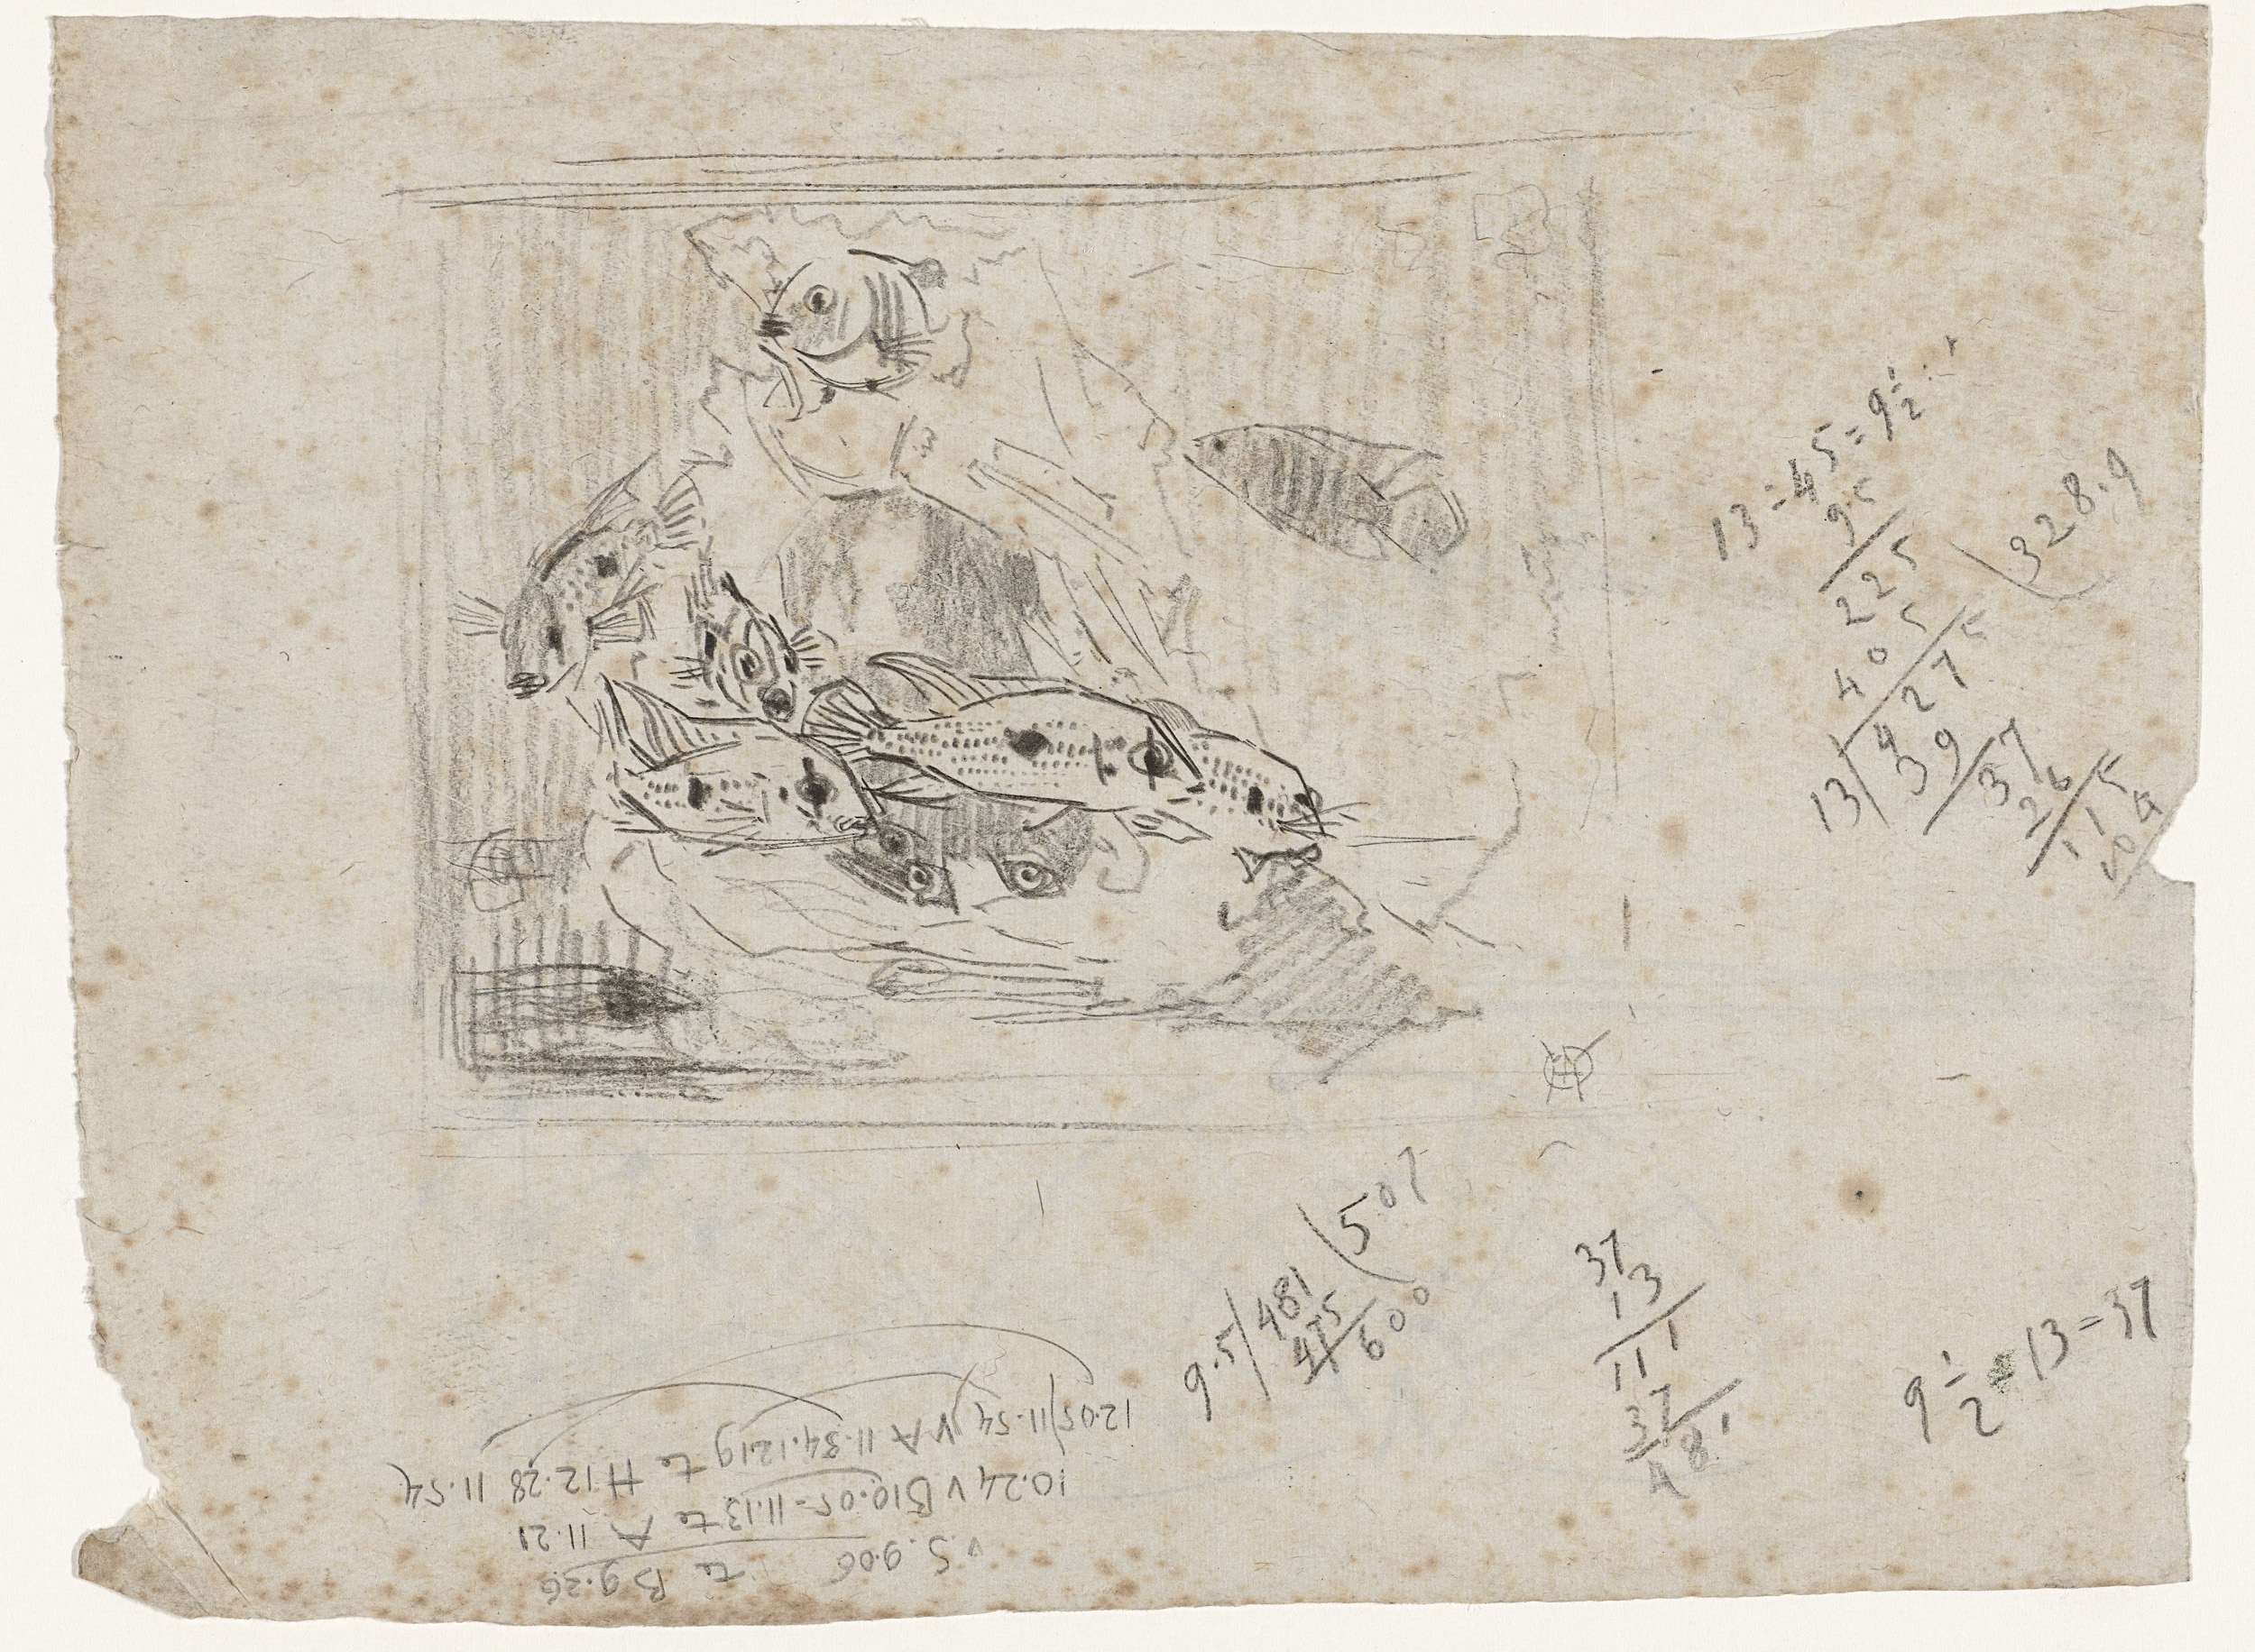 13 : 45 = 9 1/2 :
9.5
225
405
13/ 427 5 (328.9
39
37
26
115
104
9.5/ 481 (507
475
600
37
13
111
37
481
9 1/2 = 13 = 37
v S. 9.06 te B 9.36
10.24 v B 10.05 - 11.13 te A 11.21
12.05/11.54 v A 11.34.12.19 te H 12.28 11.54